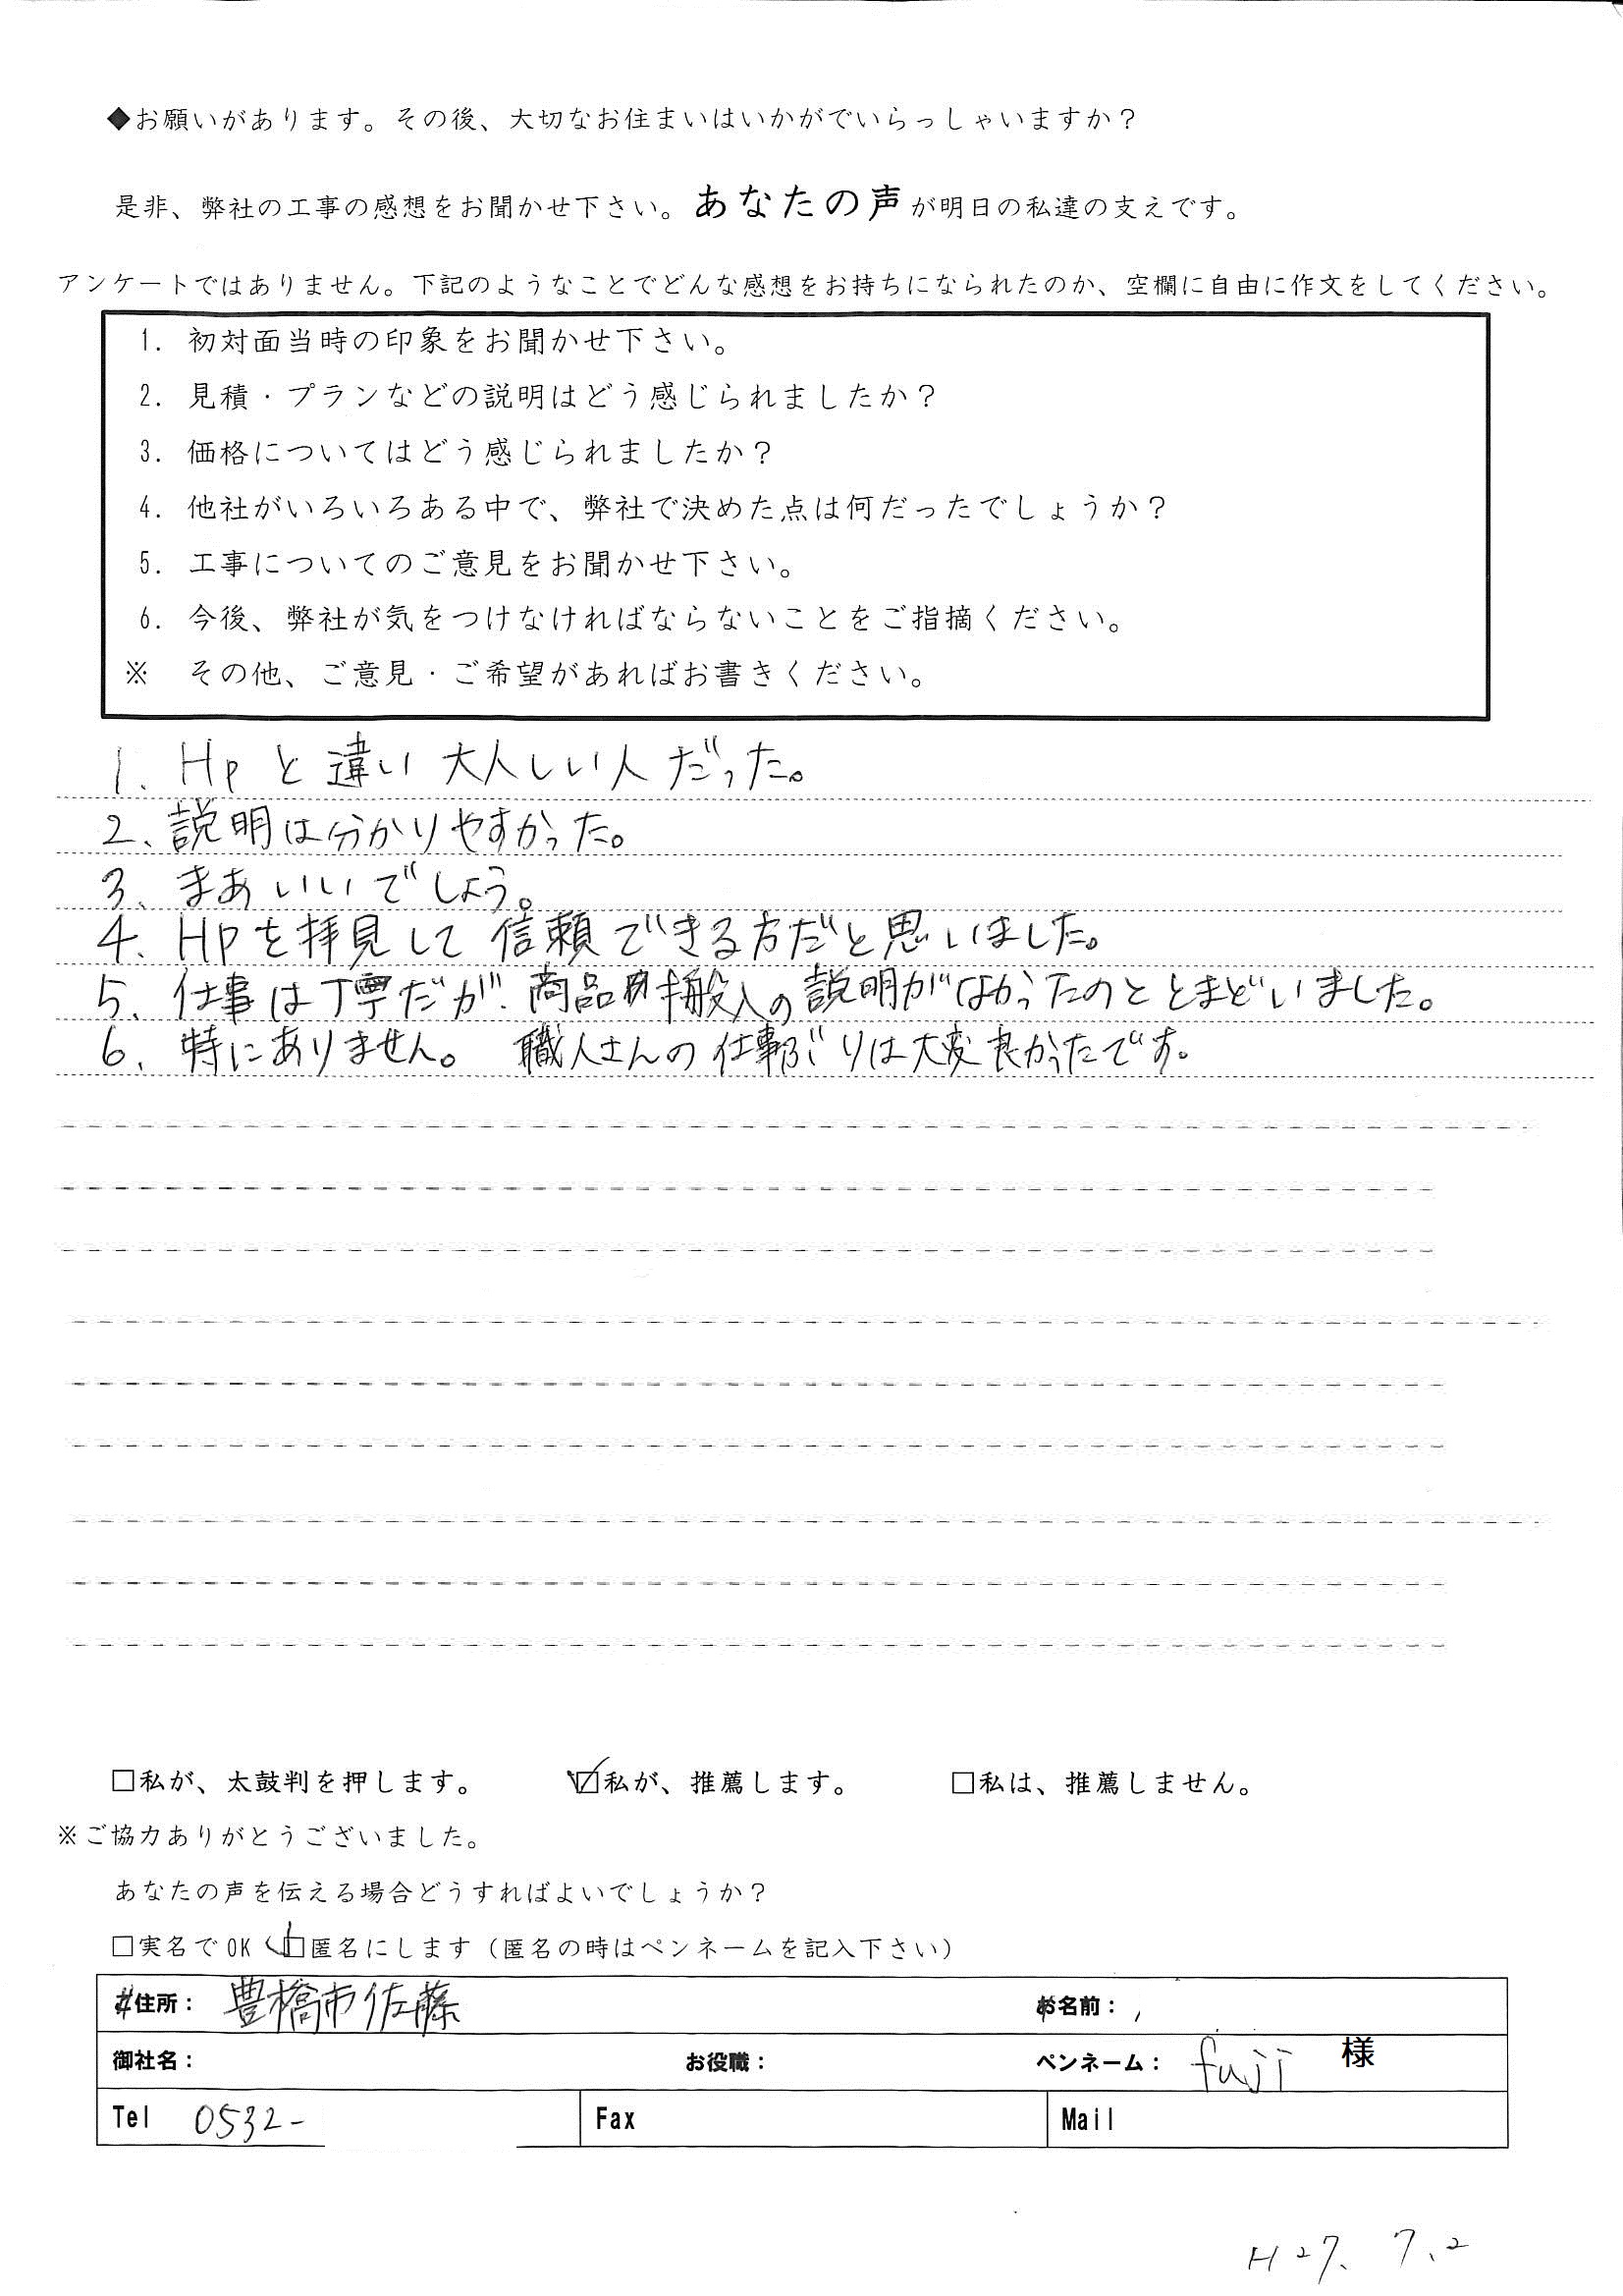 ◆お願いがあります。その後、大切なお住まいはいかがでいらっしゃいますか？
是非、弊社の工事の感想をお聞かせ下さい。あなたの声が明日の私達の支えです。
アンケートではありません。下記のようなことでどんな感想をお持ちになられたのか、空欄に自由に作文をしてください。
1. 初対面当時の印象をお聞かせ下さい。
2. 見積・プランなどの説明はどう感じられましたか？
3. 価格についてはどう感じられましたか？
4. 他社がいろいろある中で、弊社で決めた点は何だったでしょうか？
5. 工事についてのご意見をお聞かせ下さい。
6. 今後、弊社が気をつけなければならないことをご指摘ください。
※ その他、ご意見・ご希望があればお書きください。
1、Hpと違い大人しい人だった。
2、説明は分かりやすかった。
3、まあいいでしょう。
4、HPを拝見して信頼できる方だと思いました。
5、仕事は丁寧だが、商品搬入の説明がなかったのととまどいました。
6、特にありません。 職人さんの仕事ぶりは大変良かったです。
□私が、太鼓判を押します。 ☑私が、推薦します。 □私は、推薦しません。
※ご協力ありがとうございました。
あなたの声を伝える場合どうすればよいでしょうか？
□実名でOK ☑匿名にします（匿名の時はペンネームを記入下さい）
住所： 豊橋市佐藤 お名前：
御社名： お役職： ペンネーム： fuji 様
Tel 0532- Fax Mail
H27、7、2